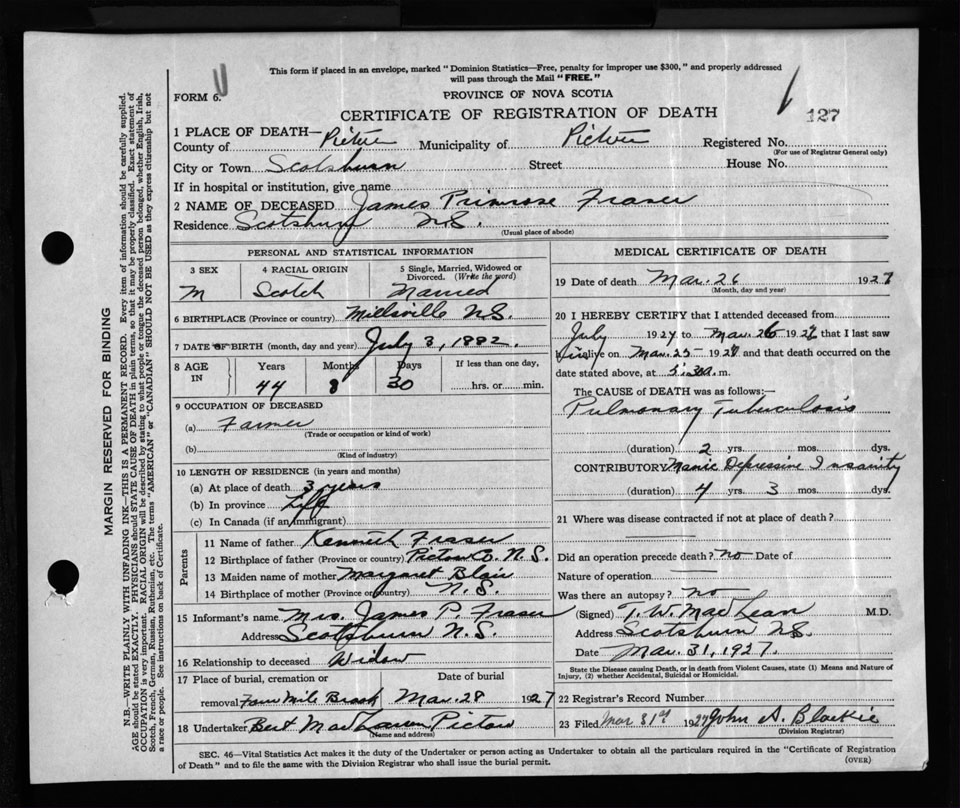 This form if placed in an envelope, marked "Dominion Statistics—Free, penalty for improper use $300," and properly addressed
will pass through the Mail "FREE."
FORM 6.
PROVINCE OF NOVA SCOTIA
CERTIFICATE OF REGISTRATION OF DEATH
127
1 PLACE OF DEATH—
County of Pictou Municipality of Pictou Registered No.
(For use of Registrar General only)
City or Town Scotsburn Street House No.
If in hospital or institution, give name
2 NAME OF DECEASED James Primrose Fraser
Residence Scotsburn N.S.
(Usual place of abode)
PERSONAL AND STATISTICAL INFORMATION
3 SEX 4 RACIAL ORIGIN 5 Single, Married, Widowed or Divorced. (Write the word)
M Scotch Married
6 BIRTHPLACE (Province or country) Millsville N.S.
7 DATE OF BIRTH (month, day and year) July 3, 1882.
8 AGE IN Years Months Days If less than one day,
44 8 30 hrs. or min.
9 OCCUPATION OF DECEASED
(a) Farmer
(Trade or occupation or kind of work)
(b)
(Kind of industry)
10 LENGTH OF RESIDENCE (in years and months)
(a) At place of death 3 years
(b) In province Life
(c) In Canada (if an immigrant)
Parents
11 Name of father Kenneth Fraser
12 Birthplace of father (Province or country) Pictou Co. N.S.
13 Maiden name of mother Margaret Blair
14 Birthplace of mother (Province or country) N.S.
15 Informant's name Mrs. James P. Fraser
Address Scotsburn N.S.
16 Relationship to deceased Widow
17 Place of burial, cremation or Date of burial
removal Four Mile Brook Mar. 28 1927
18 Undertaker Bert MacLaren Pictou
(Name and address)
MEDICAL CERTIFICATE OF DEATH
19 Date of death Mar. 26 1927
(Month, day and year)
20 I HEREBY CERTIFY that I attended deceased from
July 1924 to Mar. 26 1927 that I last saw
him alive on Mar. 25 1927 and that death occurred on the
date stated above, at 5.30 a. m.
The CAUSE OF DEATH was as follows:—
Pulmonary Tuberculosis
(duration) 2 yrs. mos. dys.
CONTRIBUTORY Manic Depressive Insanity
(duration) 4 yrs. 3 mos. dys.
21 Where was disease contracted if not at place of death?
Did an operation precede death? no Date of
Nature of operation
Was there an autopsy? no
(Signed) T. W. MacLean M.D.
Address Scotsburn N.S.
Date Mar. 31, 1927.
State the Disease causing Death, or in death from Violent Causes, state (1) Means and Nature of
Injury, and (2) whether Accidental, Suicidal or Homicidal.
22 Registrar's Record Number
23 Filed Mar 31st 1927 John A. Blaikie
(Division Registrar)
SEC. 46—Vital Statistics Act makes it the duty of the Undertaker or person acting as Undertaker to obtain all the particulars required in the "Certificate of Registration
of Death" and to file the same with the Division Registrar who shall issue the burial permit.
(OVER)
MARGIN RESERVED FOR BINDING
N.B.—WRITE PLAINLY WITH UNFADING INK—THIS IS A PERMANENT RECORD. Every item of information should be carefully supplied.
AGE should be stated EXACTLY. PHYSICIANS should STATE CAUSE OF DEATH in plain terms, so that it may be properly classified. Exact statement of
OCCUPATION is very important. RACIAL ORIGIN will be described by stating to what people or tongue the deceased person belonged, whether English, Irish,
Scotch, French, German, Russian, Ruthenian, etc. The terms "AMERICAN" or "CANADIAN" SHOULD NOT BE USED as they express citizenship but not
a race or people. See instructions on back of Certificate.